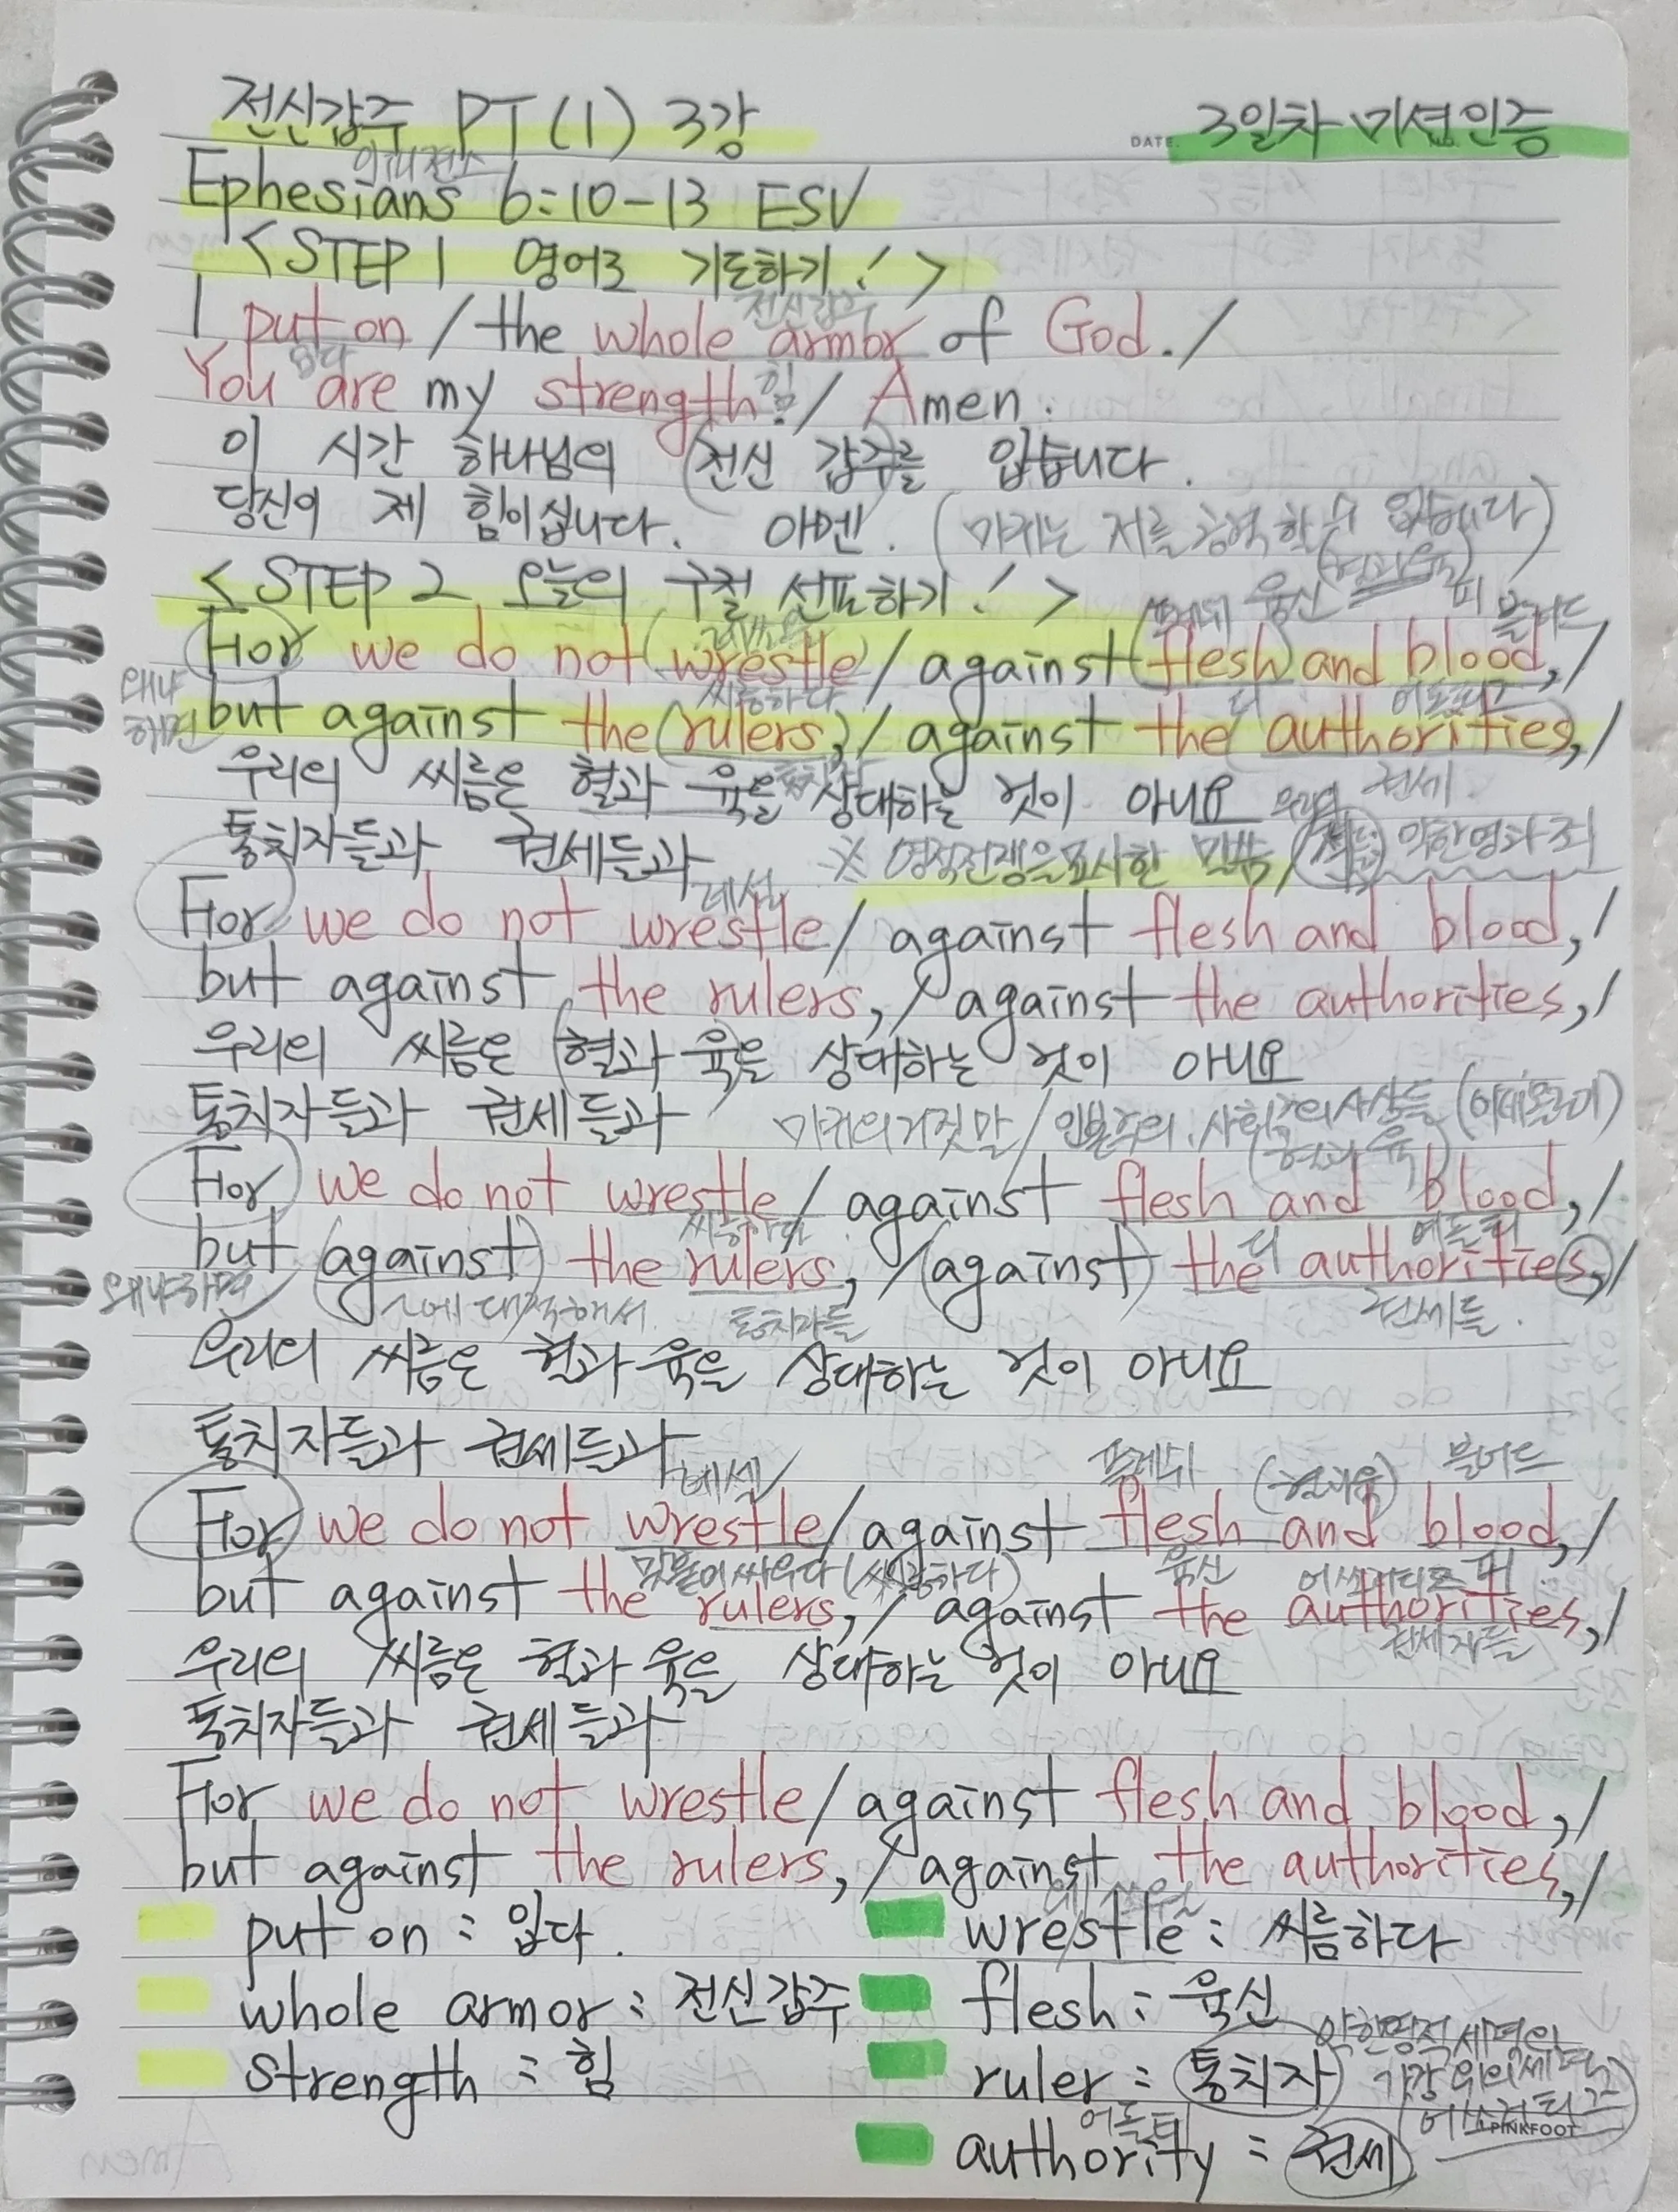 전신갑주 PT(1) 3강
DATE. NO. 3일차 미션인증
Ephesians 6:10-13 ESV
<STEP 1 영어로 기도하기!>
전신갑주
I put on / the whole armor of God. /
입다 힘
You are my strength! / Amen.
이 시간 하나님의 (전신 갑주)를 입습니다.
당신이 제 힘이십니다. 아멘. (마귀는 저를 공격할 수 없습니다)
(혈과 육)
<STEP 2 오늘의 구절 선포하기!>
육신 피 블러드
For we do not (wrestle) / against (flesh) and blood, /
왜냐하면 씨름하다
but against the (rulers), / against the (authorities), /
우리의 씨름은 혈과 육을 상대하는 것이 아니요
권세
통치자들과 권세들과 ※ 영적전쟁을 묘사한 말씀 / 악한영과 죄
For we do not wrestle / against flesh and blood, /
but against the rulers, / against the authorities, /
우리의 씨름은 (혈과 육)을 상대하는 것이 아니요
통치자들과 권세들과 마귀의 거짓말 / 인본주의, 사회주의 사상들
(혈과 육)
For we do not wrestle / against flesh and blood, /
씨름하다 더
but (against) the rulers, / (against) the authorities, /
왜냐하면 ~에 대적해서. 통치자들 권세들.
우리의 씨름은 혈과 육을 상대하는 것이 아니요
통치자들과 권세들과
레슬 플레쉬 (혈과 육) 블러드
For we do not wrestle / against flesh and blood, /
맞붙어 싸우다 (씨름하다) 육신 피
but against the rulers, / against the authorities, /
권세자들
우리의 씨름은 혈과 육을 상대하는 것이 아니요
통치자들과 권세들과
For we do not wrestle / against flesh and blood, /
but against the rulers, / against the authorities, /
put on : 입다.
wrestle : 씨름하다
whole armor : 전신갑주
flesh : 육신
strength : 힘
ruler : 통치자
악한영적세력의
가장 위의 세력
PINKFOOT
authority : 권세